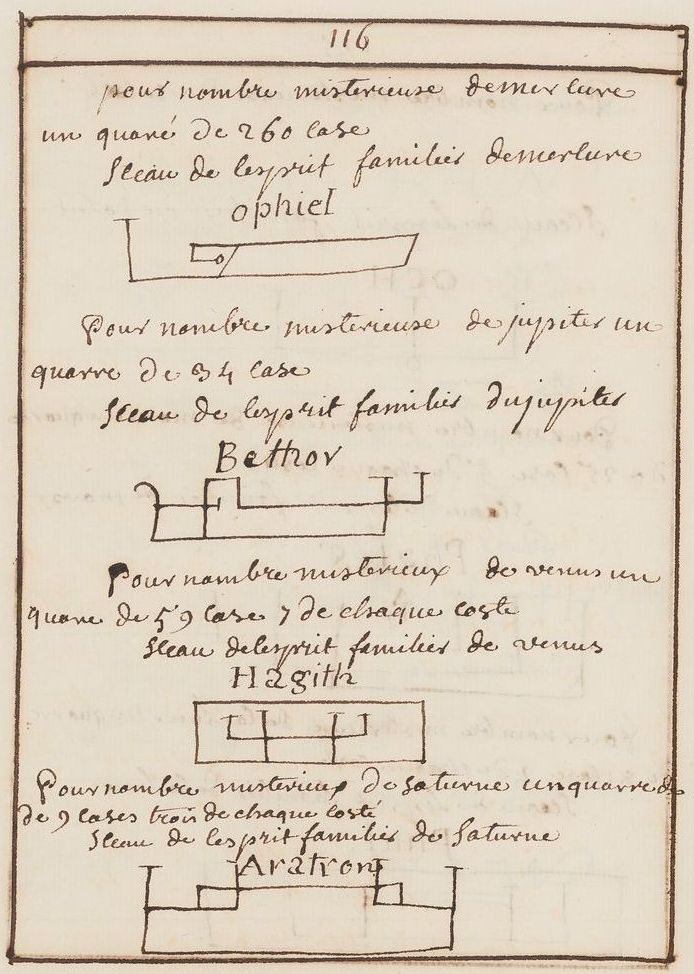 116
pour nombre misterieuse demercure
un quaré de 260 case
sceau de lesprit familier demercure
ophiel
Pour nombre misterieuse de jupiter un
quarre de 34 case
sceau de lesprit familier dujupiter
Bethor
Pour nombre misterieux de venus un
quare de 59 case 7 de chaque coste
sceau delesprit familier de venus
Hagith
Pour nombre misterieux de saturne unquarre de
de 9 cases trois de chaque costé
sceau de lesprit familier de saturne
Aratron